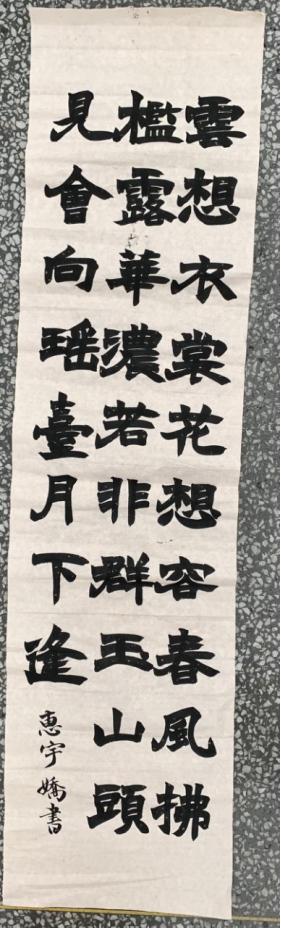 雲想衣裳花想容春風拂
檻露華濃若非群玉山頭
見會向瑶臺月下逢
惠宇嬌書